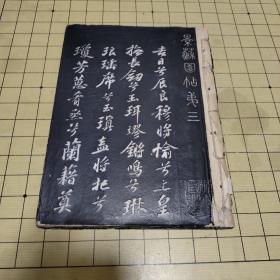 景蘇園帖第三
吉日兮辰良穆将愉兮上皇
撫長劒兮玉珥璆鏘鳴兮琳
琅瑤席兮玉瑱盍将把兮
瓊芳蕙肴烝兮蘭籍奠